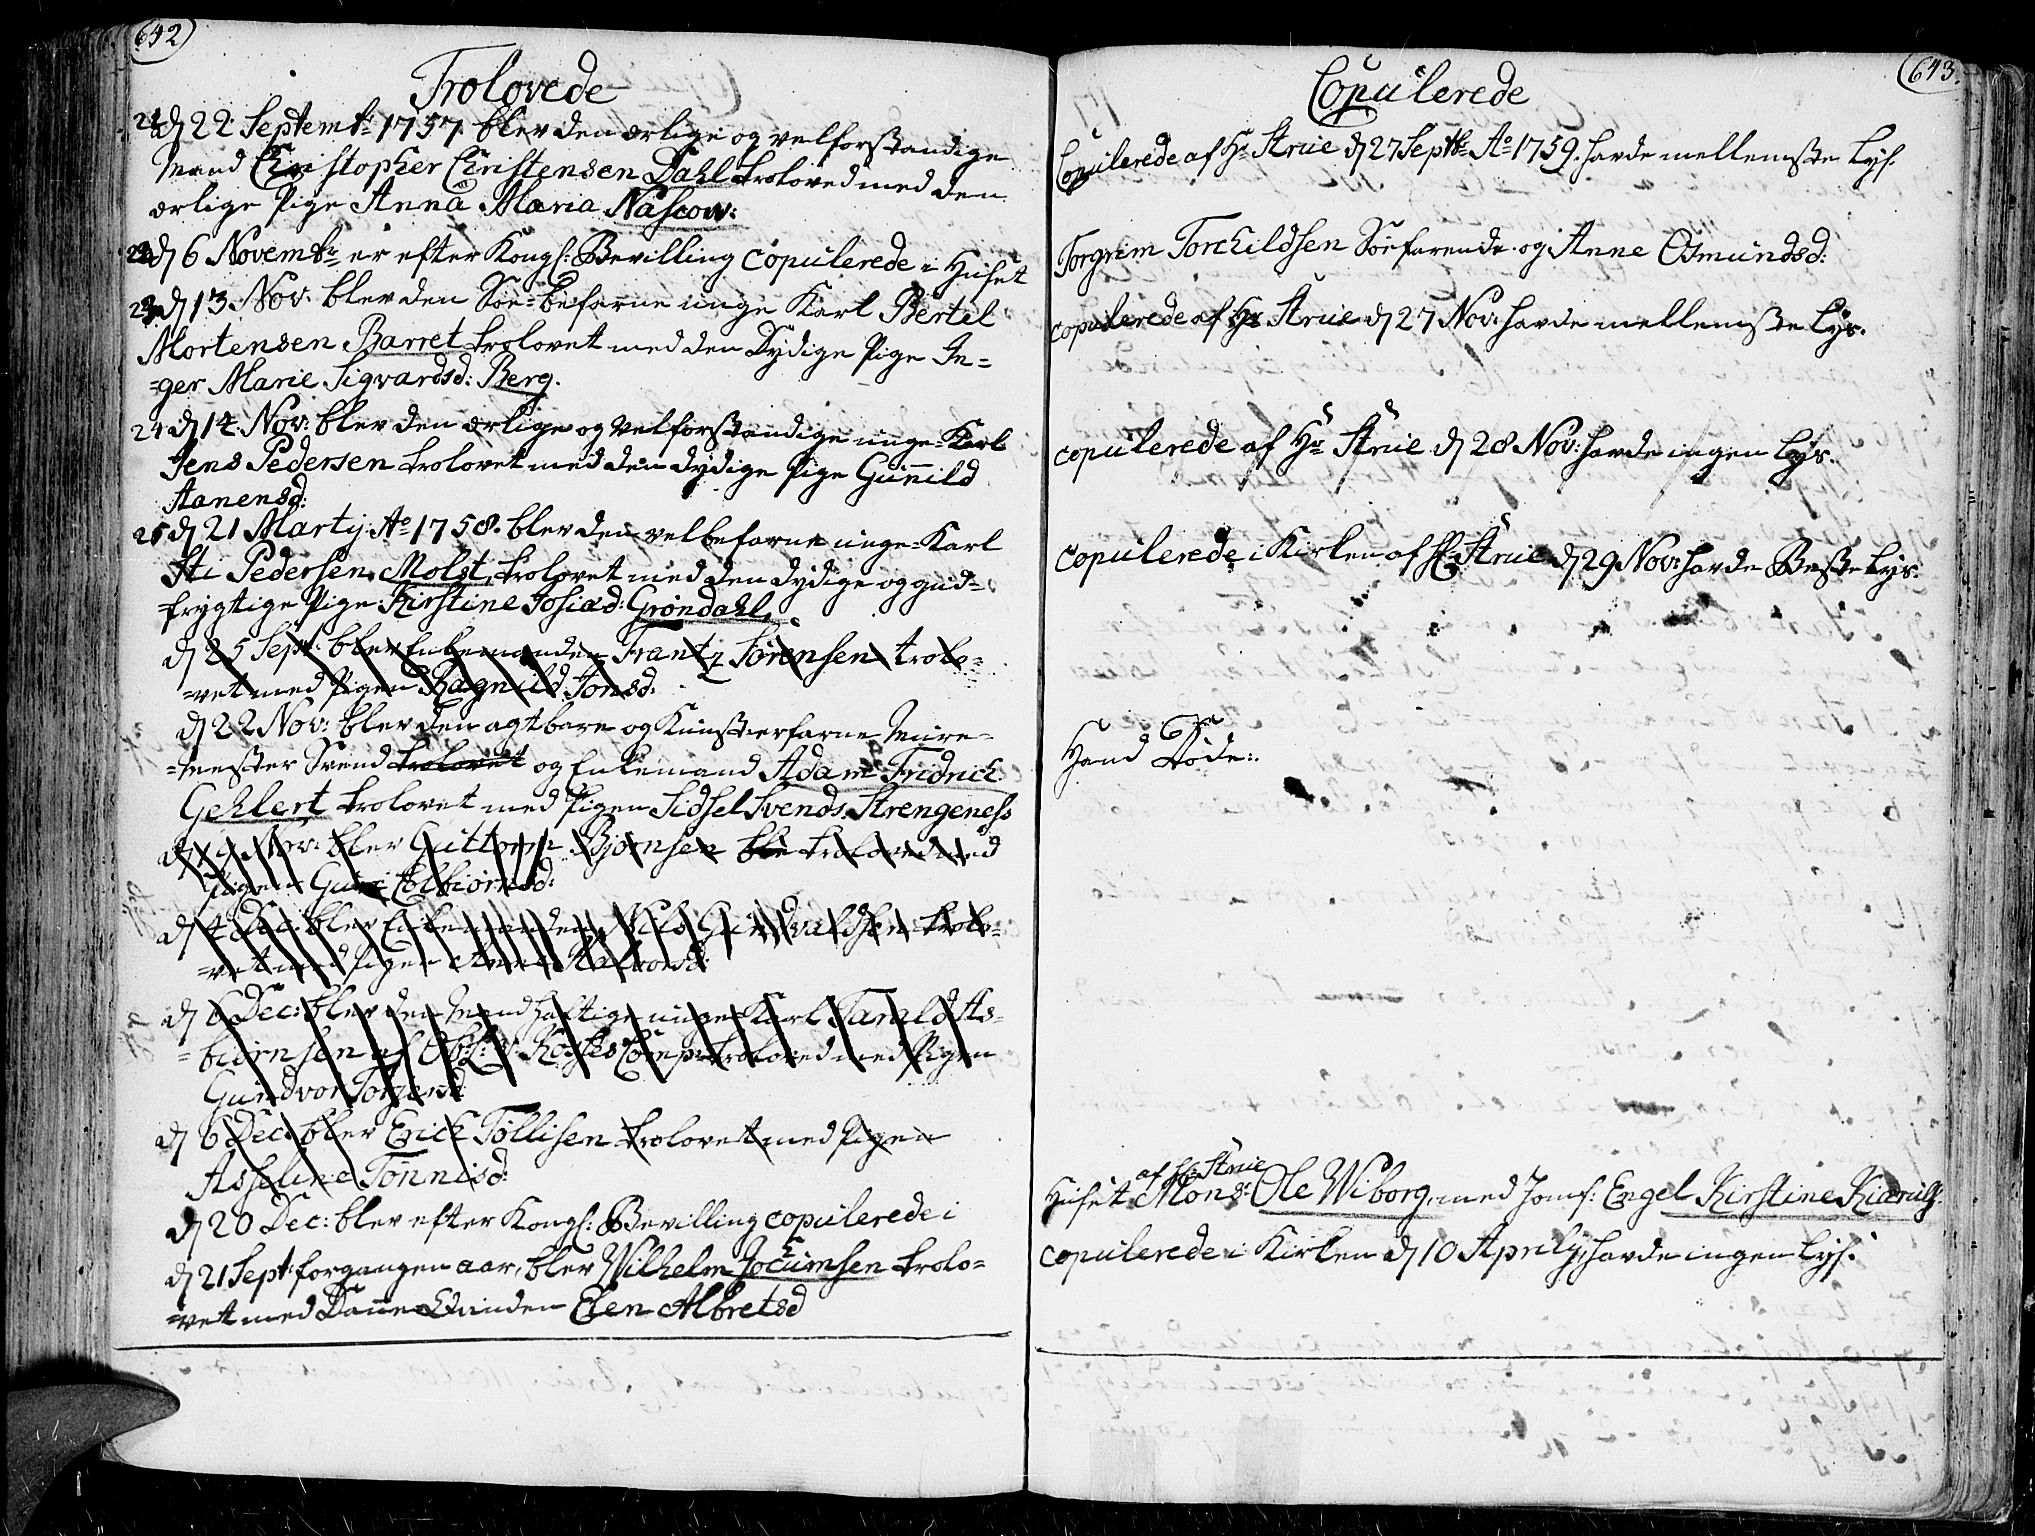 642
Trolovede
21 d 22 Septembr 1757 blev den ærlige og velforstandige
Mand Christopher Christensen Dahl troloved med den
ærlige Pige Anna Maria Nascow:
22 d 6 Novembr er efter Kongl: Bevilling copulerede i Huset
23 d 13 Nov: blev den Söe-befarne unge Karl Bertel
Mortensen Barret trolovet med den Dydige Pige In-
=ger Marie Sigvardsd: Berg.
24 d 14 Nov: blev den ærlige og velforstandige unge-Karl
Jens Pedersen trolovet med den dydige Pige Guñild
Aanensd:
25 d 21 Martij Ao 1758. blev den velbefarne unge-Karl
Sti Pedersen Molst, trolovet med den dydige og gud-
frygtige Pige Kirstine Josiæd: Grøndahl.
d 25 Sept: blev Enkemanden Frantz Sørensen trolo-
=vet med Pigen Ragnild Jonsd:
d 22 Nov: blev den agtbare og Kunsterfarne Mure-
=mester Svend trolovet og Enkemand Adam Fridrich
Gehlert trolovet med Pigen Sidsel Svends: Strengenefs
d 29 Nov: blev Guttorm Bjørnsen ble troloved med
Pigen Guri Aslbiørnsd:
d 4 Dec: blev Enkemanden Niels Gundvaldsen trolo-
=vet med Pigen Anne Halvorsd:
d 6 Dec: blev den Mandhaftige unge Karl Tarald As-
=biørnsen af Comp: troloved med Pigen
Gundvor Torgersd
d 6 Dec: blev Erich Tøllisen trolovet med Pigen
Asseline Tønnisd:
d 20 Dec: blev efter Kongl: Bevilling copulerede i
d 21 Sept: forgangen aar, blev Wilhelm Jochumsen trolo-
=vet med Danne-Qvinden Elen Albretsd
643
Copulerede
Copulerede af Hr Strue d 27 Septbr Ao 1759. havde mellemste Lys.
Torgrim Torchildsen Söefarende og Anne Osmundsd:
copulerede af Hr Strue d 27 Nov: havde mellemste Lys.
copulerede af Hr Strue d 28 Nov: havde ingen Lys.
copulerede i Kirken af Hr Strue d 29 Nov: havde Beste Lys:
Hand Døde:.
af Hr: Strue
Huset Monsr: Ole Wiborg, med Jomf: Engel Kirstine Kiærulf.
copulerede i Kirken d 10 Aprilij, havde ingen Lys: